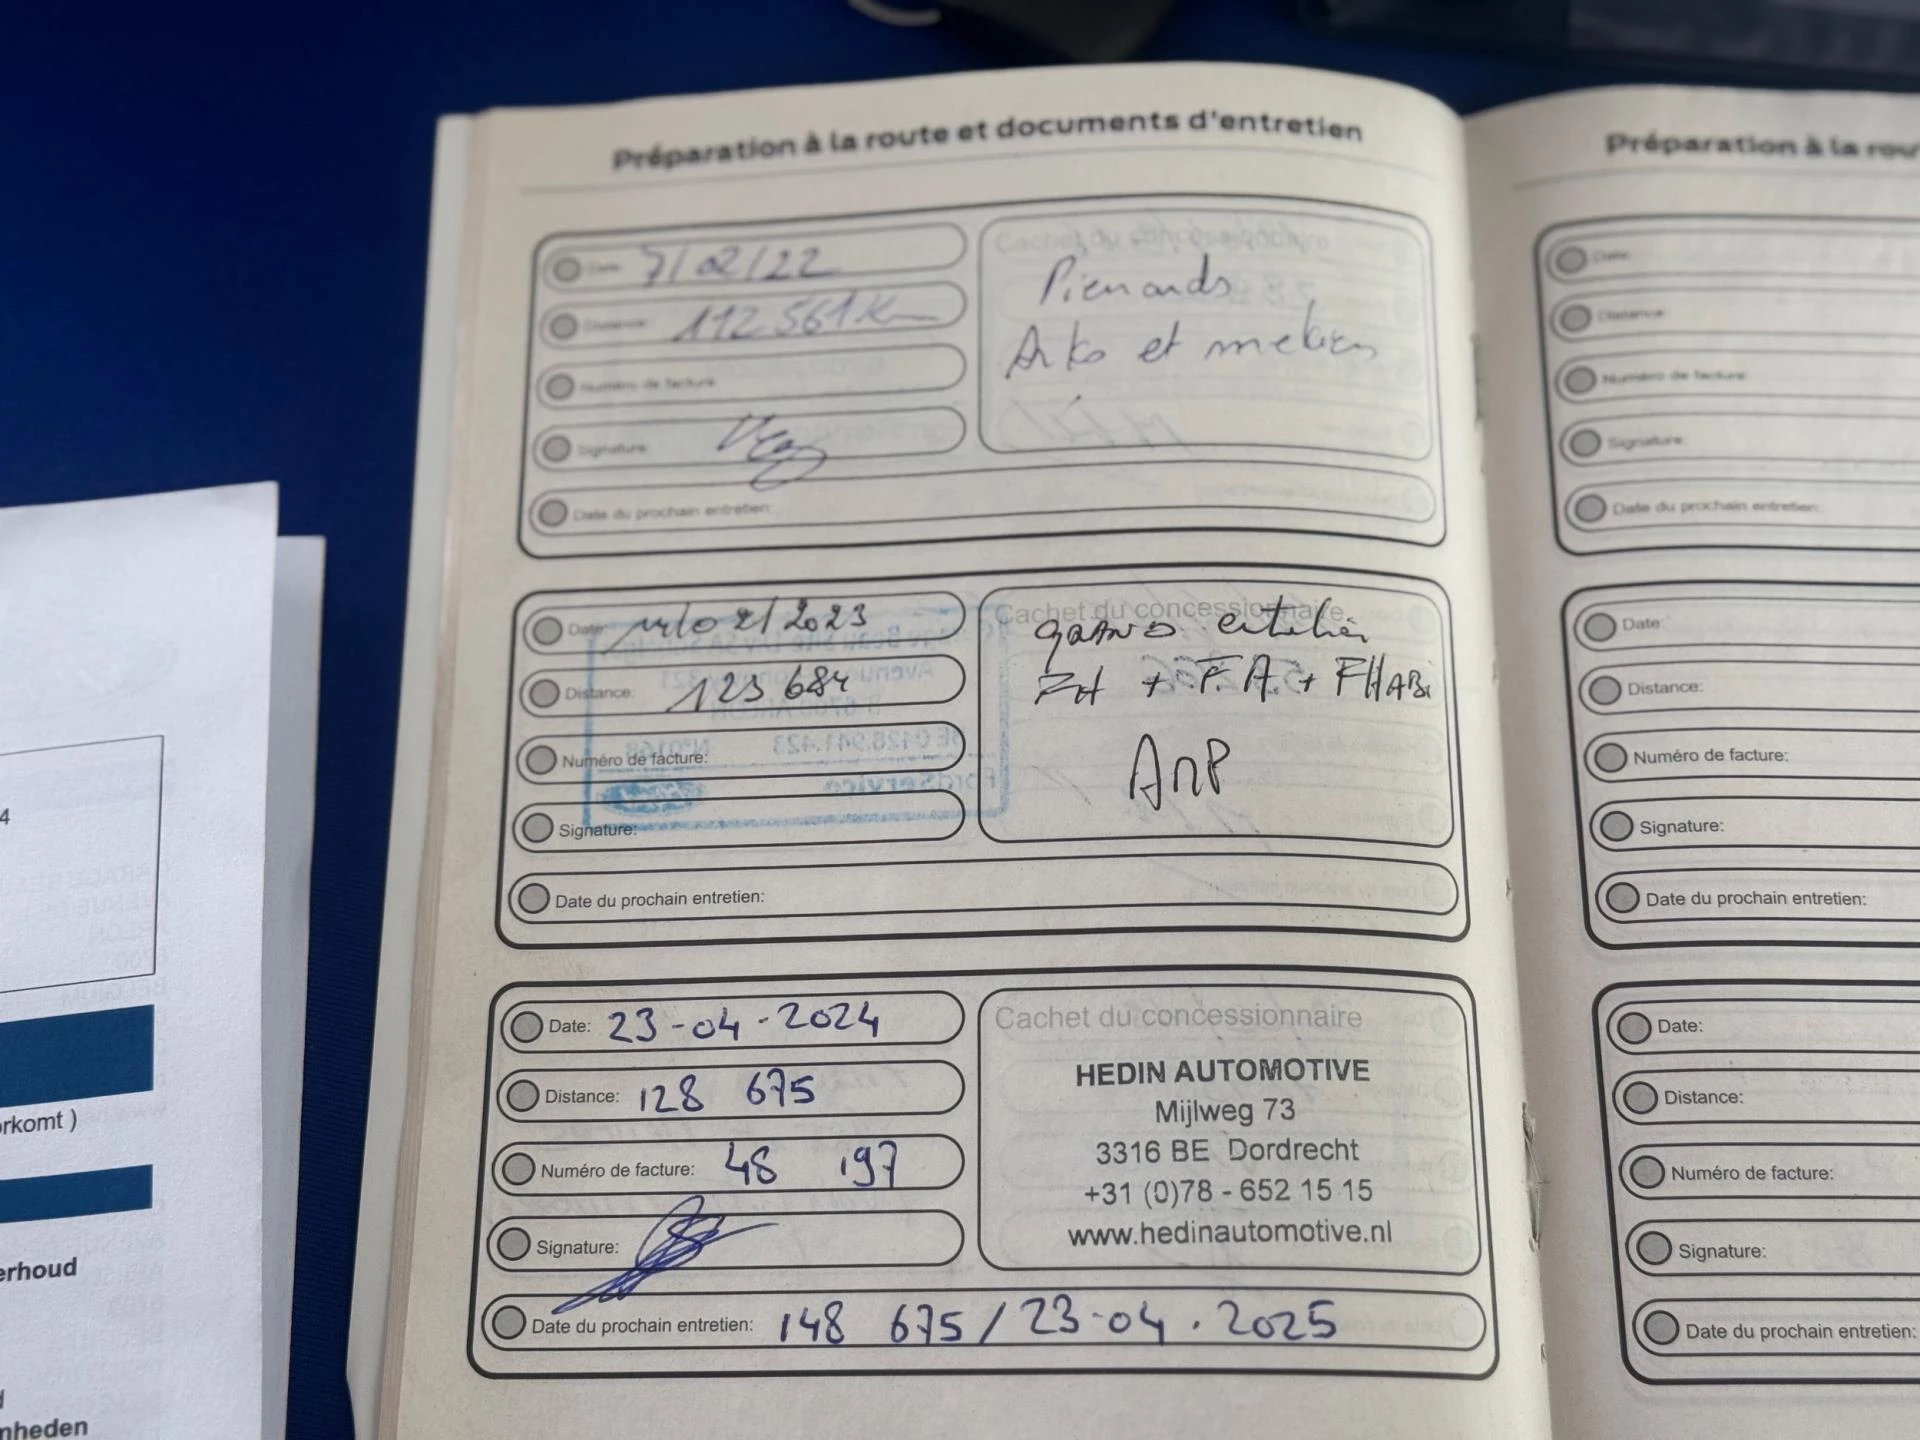 Préparation à la route et documents d'entretien
Date: 7/02/22
Distance: 112 561 km
Numéro de facture:
Signature:
Date du prochain entretien:
Cachet du concessionnaire
et
Date: 14/02/2023
Distance: 123 684
Numéro de facture:
Signature:
Date du prochain entretien:
Cachet du concessionnaire
grand entretien
+ F.A. + FHABi
Date: 23-04-2024
Distance: 128 675
Numéro de facture: 48 197
Signature:
Date du prochain entretien: 148 675 / 23-04.2025
Cachet du concessionnaire
HEDIN AUTOMOTIVE
Mijlweg 73
3316 BE Dordrecht
+31 (0)78 - 652 15 15
www.hedinautomotive.nl
Préparation à la rou
Date:
Distance:
Numéro de facture:
Signature:
Date du prochain entretien:
Date:
Distance:
Numéro de facture:
Signature:
Date du prochain entretien:
Date:
Distance:
Numéro de facture:
Signature:
Date du prochain entretien:
4
orkomt )
erhoud
nheden